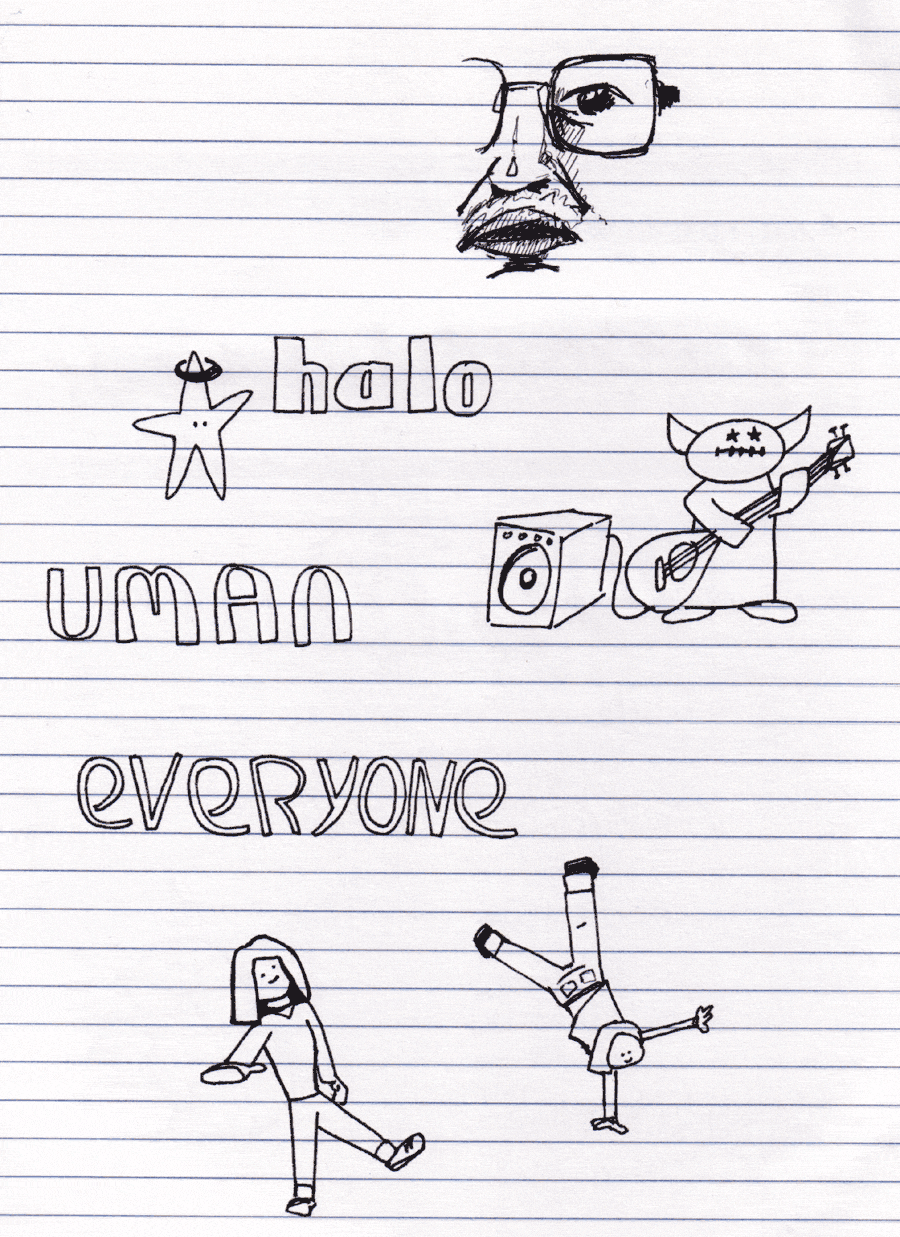 halo
UMAN
everyone